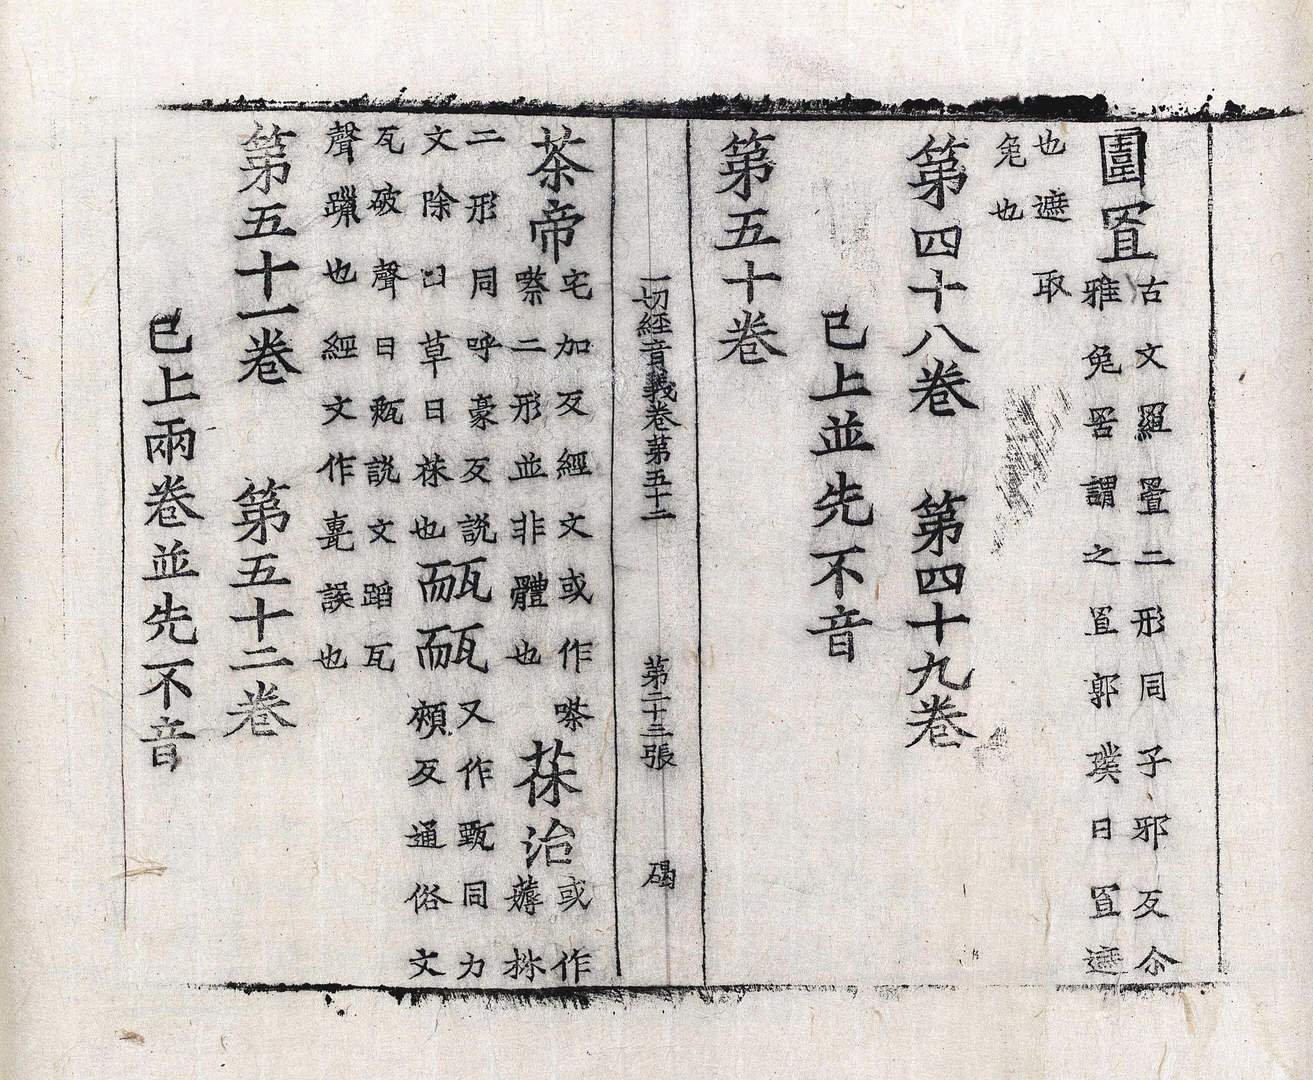 圍罝古文䍙罝二形同子邪反尒
雅兔罟謂之罝郭璞曰罝遮
也遮取
兔也
第四十八卷　第四十九卷
已上並先不音
第五十卷
一切經音義卷第五十二　第二十三張　碣
茶帝宅加反經文或作㗬
嗏二形並非體也
茠治或作
薅㧣
二形同呼豪反説
文除田草曰茠也
㼝㼝又作甄同力
頰反通俗文
瓦破聲曰㼝説文蹈瓦
聲躐也經文作㲄誤也
第五十一卷　第五十二卷
已上兩卷並先不音